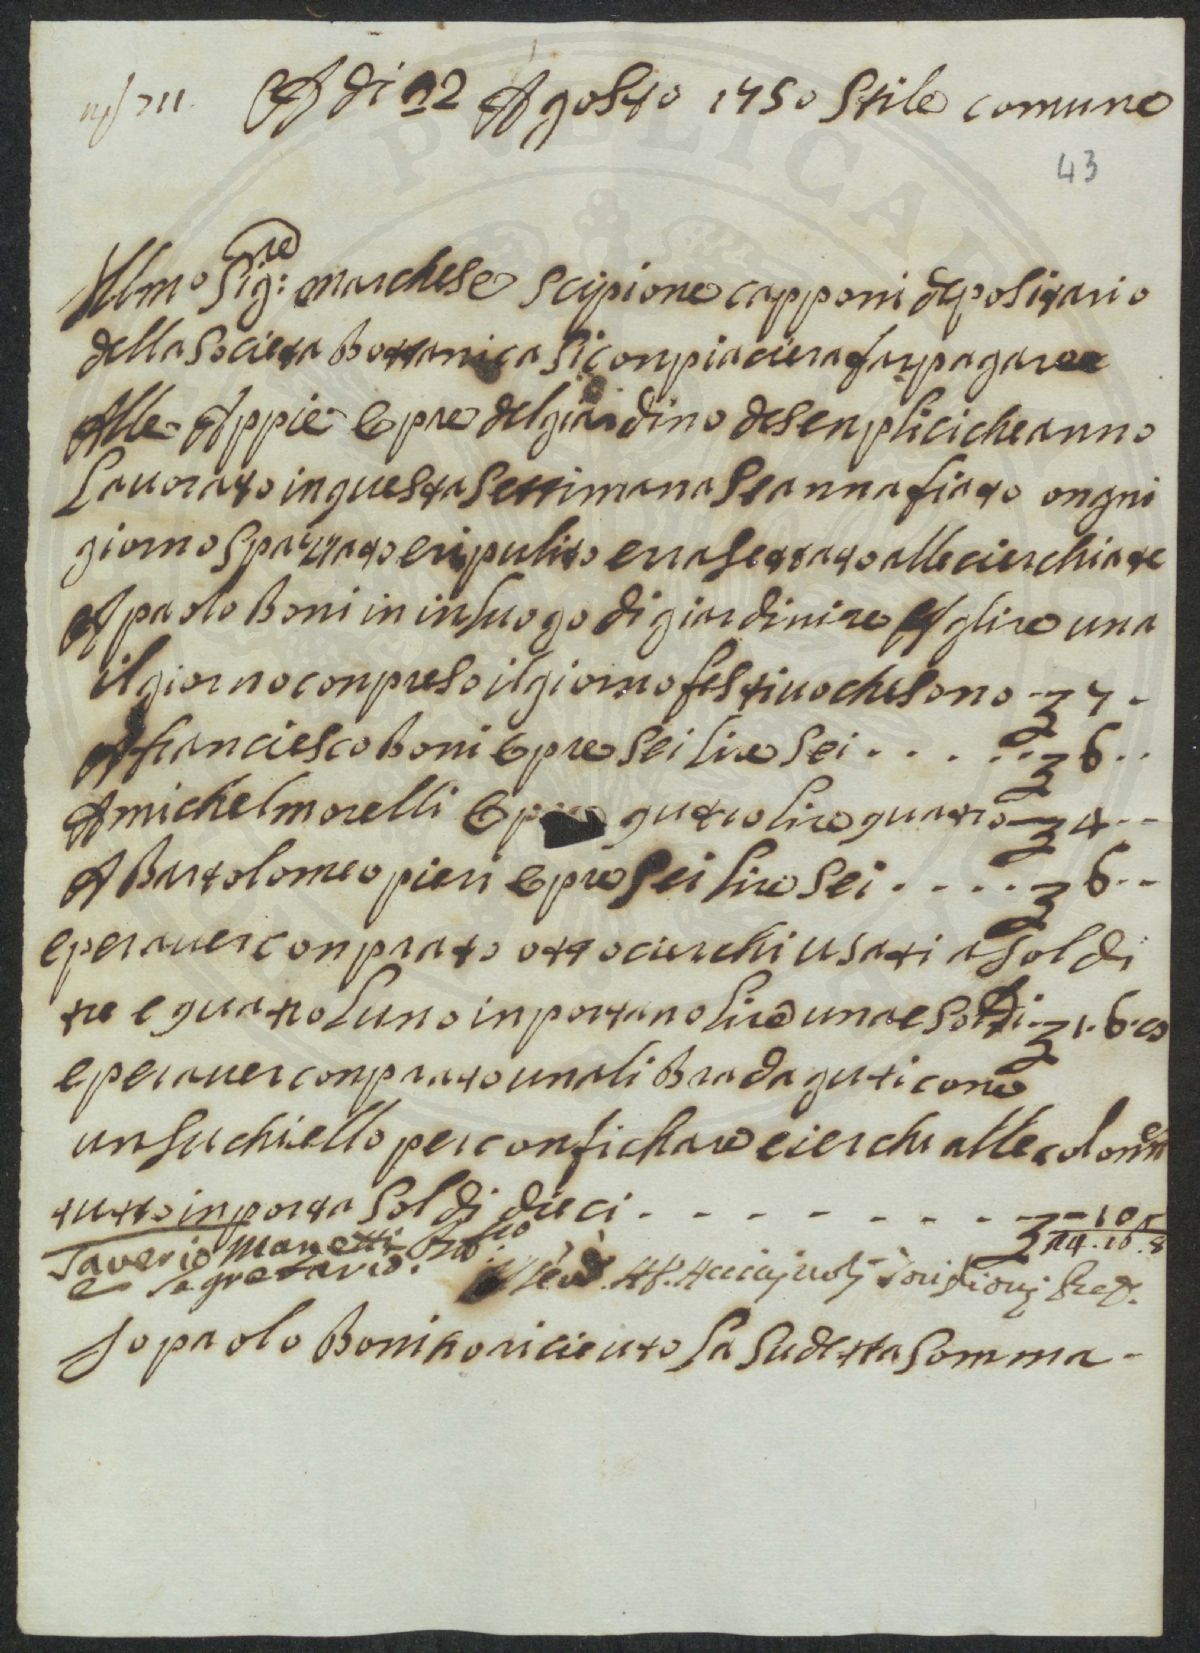 A di 22 Agosto 1750 Stile comune
43
Illmo Sig:re marchese Scipione capponi depositario
della Societa Bottanica Si conpiaciera far pagare
Alle Appie Opre del giardino de senplici che anno
Lauorato in questa Settimana Se annafiato ongni
giorno Spazzato e ripulito e rasettato alle cierchiate
A paolo Boni in in luogo di giardinire A lire una
il giorno conpreso il giorno festiuo che sono - 7 -
A franciesco Boni Opre Sei Lire Sei . . . . . . 6 . .
A michel morelli Opre quatro Lire quatro - 4 - -
A Bartolomeo pieri Opre Sei Lire Sei . . . . . 6 . - -
e per auer conprato otto cierchi usati a Soldi
tre e quatro Luno inportano Lire una e Soldi - 1 . 6 . 8
e per auer conprato una liBra d aguti cone
un Suchiello per confichare e cierchi alle colonne
tutto inporta Soldi dieci . - - - - - - - - - 10
24 . 16 . 8
Saverio Manetti
Segretario.
Io paolo Boni ho riceuto La Sudetta Somma -